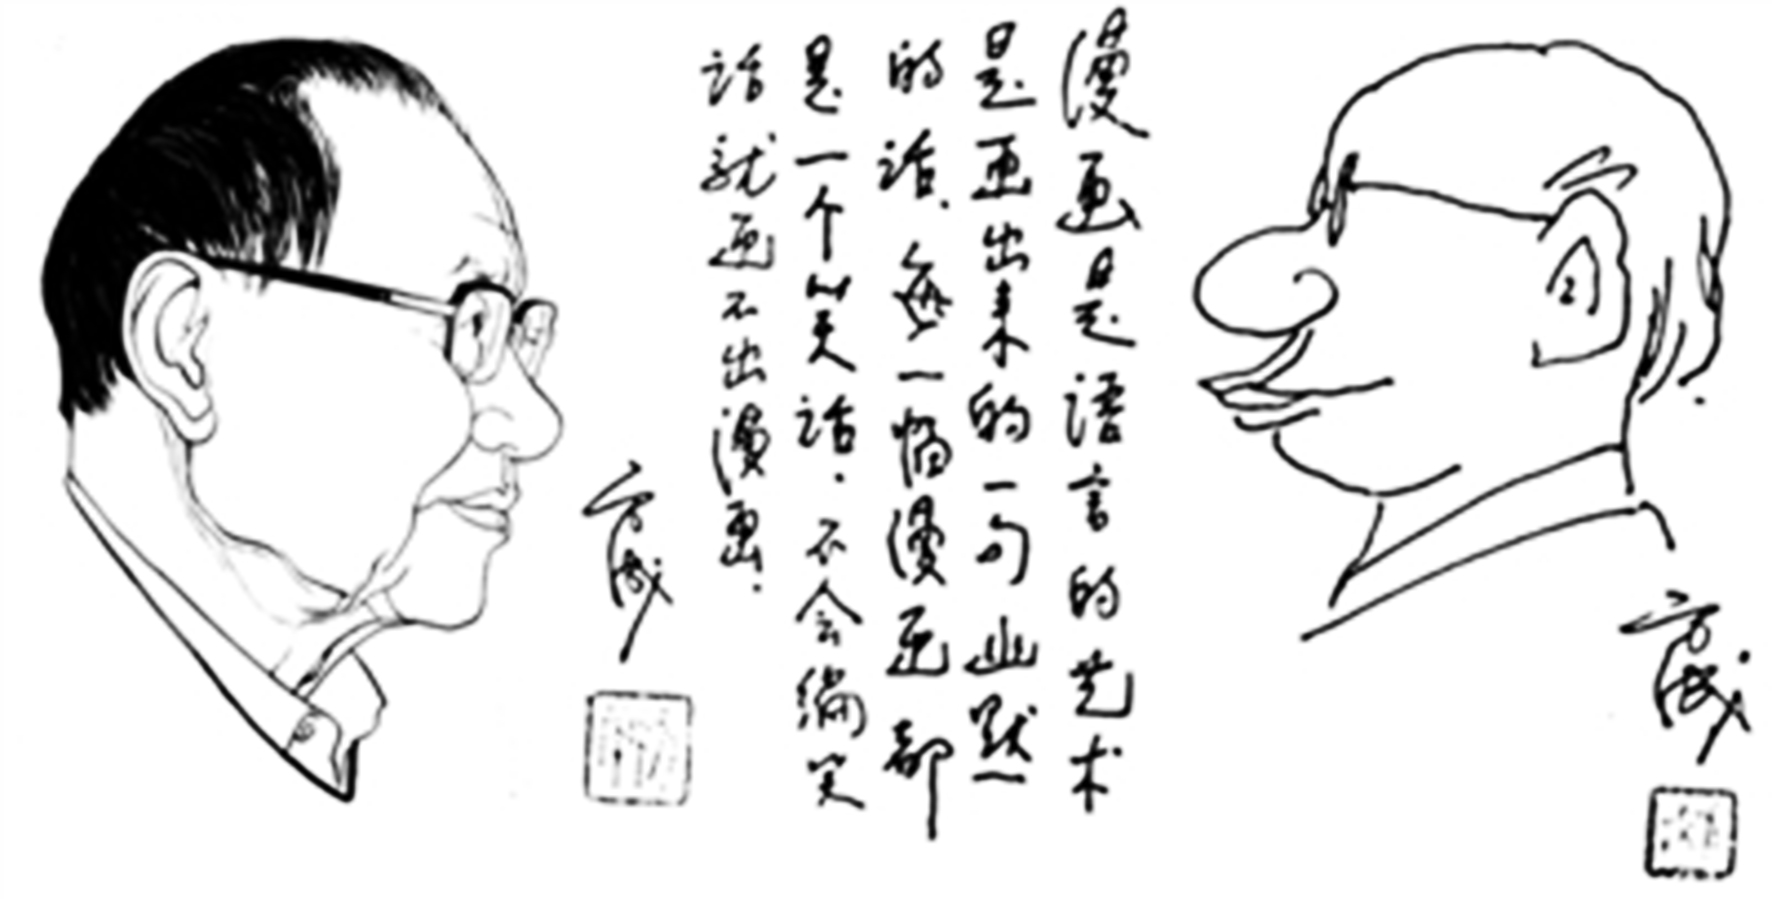 漫画是语言的艺术
是画出来的一句幽默
的话．每一幅漫画都
是一个笑话．不会编笑
话就画不出漫画．
方成
方成